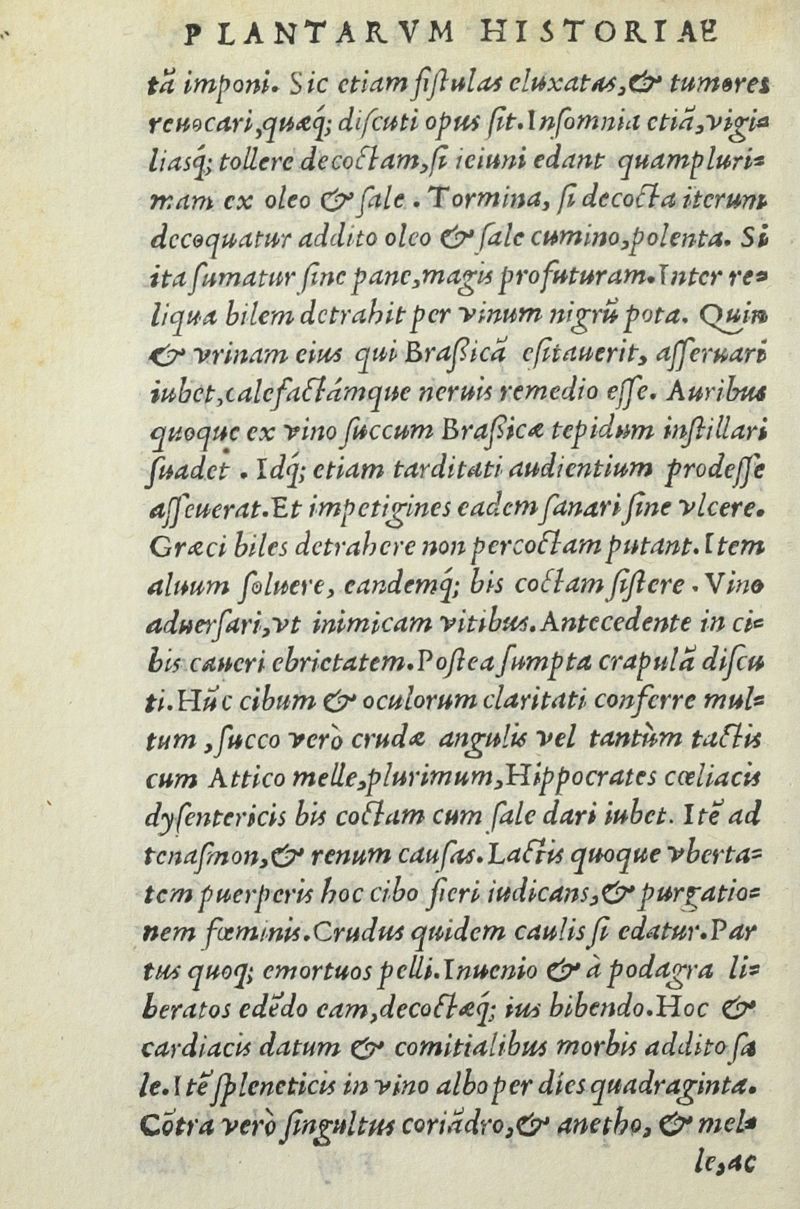 PLANTARVM HISTORIAE
tā imponi. Sic etiam fiſtulas eluxatas,& tumores
reuocari,quæq́; diſcuti opus ſit.Inſomnia etiā,vigi=
liasq́; tollere decoctam,ſi ieiuni edant quampluri=
mam ex oleo & ſale . Tormina, ſi decocta iterum
decoquatur addito oleo & ſale cumino,polenta. Si
ita ſumatur ſine pane,magis profuturam.Inter re=
liqua bilem detrahit per vinum nigrū pota. Quin
& vrinam eius qui Braſsicā eſitauerit, aſſeruari
iubet,calefactámque neruis remedio eſſe. Auribus
quoque ex vino ſuccum Braſsicæ tepidum inſtillari
ſuadet . Idq́; etiam tarditati audientium prodeſſe
aſſeuerat.Et impetigines eadem ſanari ſine vlcere.
Græci biles detrahere non percoctam putant.Item
aluum ſoluere, eandemq́; bis coctam ſiſtere . Vino
aduerſari,vt inimicam vitibus.Antecedente in ci=
bis caueri ebrietatem.Poſtea ſumpta crapulā diſcu
ti.Hūc cibum & oculorum claritati conferre mul=
tum ,ſucco verò crudæ angulis vel tantùm tactis
cum Attico melle,plurimum,Hippocrates cœliacis
dyſentericis bis coctam cum ſale dari iubet. Itē ad
tenaſmon,& renum cauſas.Lactis quoque vberta=
tem puerperis hoc cibo fieri iudicans,& purgatio=
nem fœminis.Crudus quidem caulis ſi edatur.Par
tus quoq; emortuos pelli.Inuenio & à podagra li=
beratos edēdo eam,decoctæq́; ius bibendo.Hoc &
cardiacis datum & comitialibus morbis addito ſa
le.Itē ſpleneticis in vino albo per dies quadraginta.
Cōtra verò ſingultus coriādro,& anetho, & mel=
le,ac